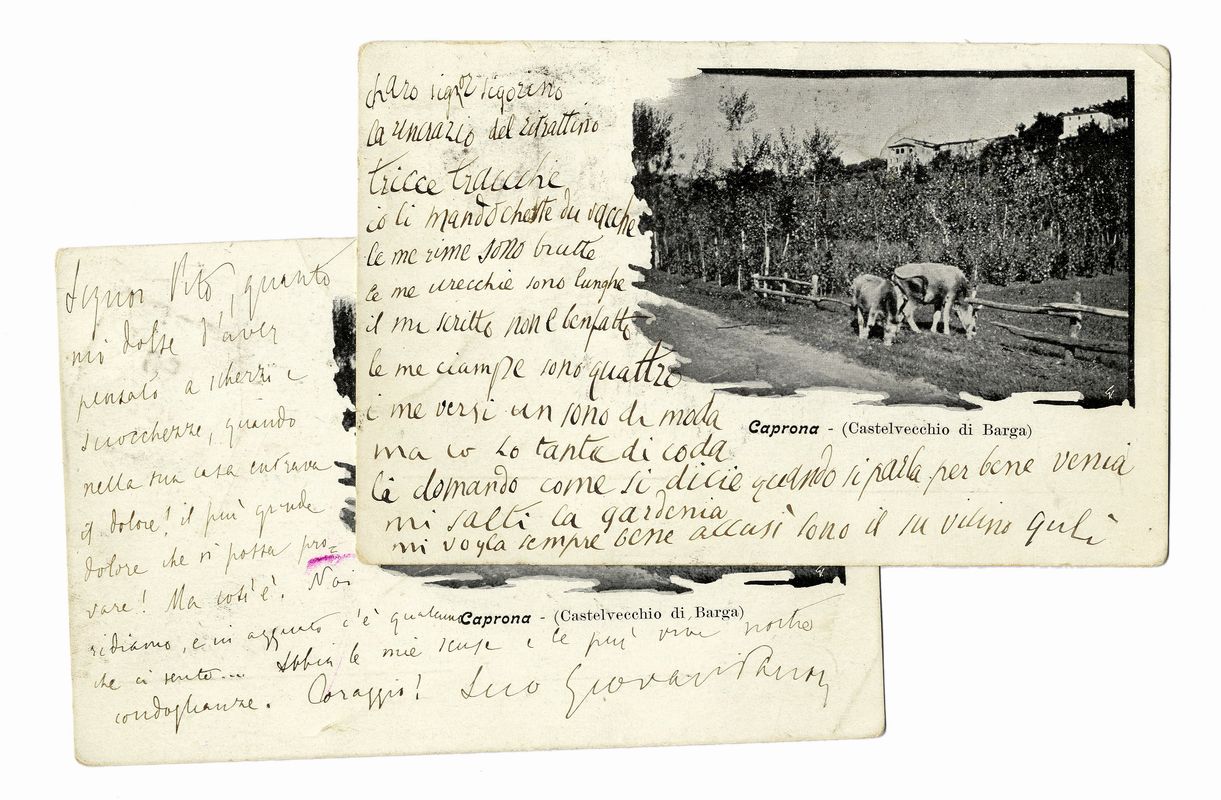 charo signor sigorino
la rincrazio del ritrattino
tricce tracche
io li mando cheste du vacche
le me rime sono brutte
le me urecchie sono lunghe
il mi scritto non è benfatto
le me ciampe sono quattro
i me versi un sono di moda
ma io ho tanta di coda
Caprona - (Castelvecchio di Barga)
la domando come si dicie quando si parla per bene venia
mi salti la gardenia
mi voglia sempre bene accusì sono il su vicino Gulì
Signor Vito, quanto
mi dolse d'aver
pensato a scherzi e
sciocchezze, quando
nella sua casa entrava
il dolore! il più grande
dolore che si possa pro-
vare! Ma così è. Noi
ridiamo, e in agguato c'è qualcuno
Caprona - (Castelvecchio di Barga)
che ci sente... Abbia le mie scuse e le più vive nostre
condoglianze. Coraggio! Suo Giovanni Pascoli